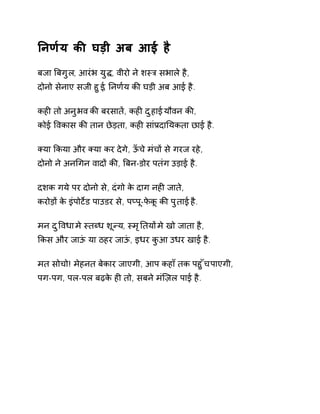 निर्णय की घड़ी अब आई है
बजा बिगुल, आरंभ युद्ध, वीरो ने शस्त्र सभाले है,
दोनो सेनाए सजी हुई, निर्णय की घडी अब आई है.
कही तो अनुभव की बरसातें, कही दुहाई यौवन की,
कोई विकास की तान छेड़ता, कही सांप्रदायिकता छाई है.
क्या किया और क्या कर देगे, ऊँचे मंचों से गरज रहे,
दोनो ने अनगिन वादों की, बिन-डोर पतंग उड़ाई है.
दशक गये पर दोनो से, दंगो के दाग नही जाते,
करोड़ों के इंपोर्टेड पाउडर से, पप्पू-फेकू की पुताई है.
मन दुविधा मे स्तब्ध शून्य, स्मृतियों मे खो जाता है,
किस और जाऊं या ठहर जाऊं, इधर कुआ उधर खाई है.
मत सोचो! मेहनत बेकार जाएगी, आप कहाँ तक पहुँच पाएगी,
पग-पग, पल-पल बढ़के ही तो, सबने मंज़िल पाई है.